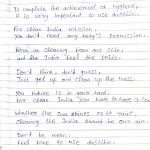 To complete the achievement of hygiene,
it is very important to use dustbin.
For clean India mission,
you don't need any body's permission.
Work on cleaning from our side,
and the India feel the pride.
Don't think, don't guess,
Just get up and clean up the mess.
You future is in your hand.
For clean India you have to take a
Whether the sun shines or it rain,
cleaning the India should be our aim.
Don't be mean,
feel free to use dustbin.